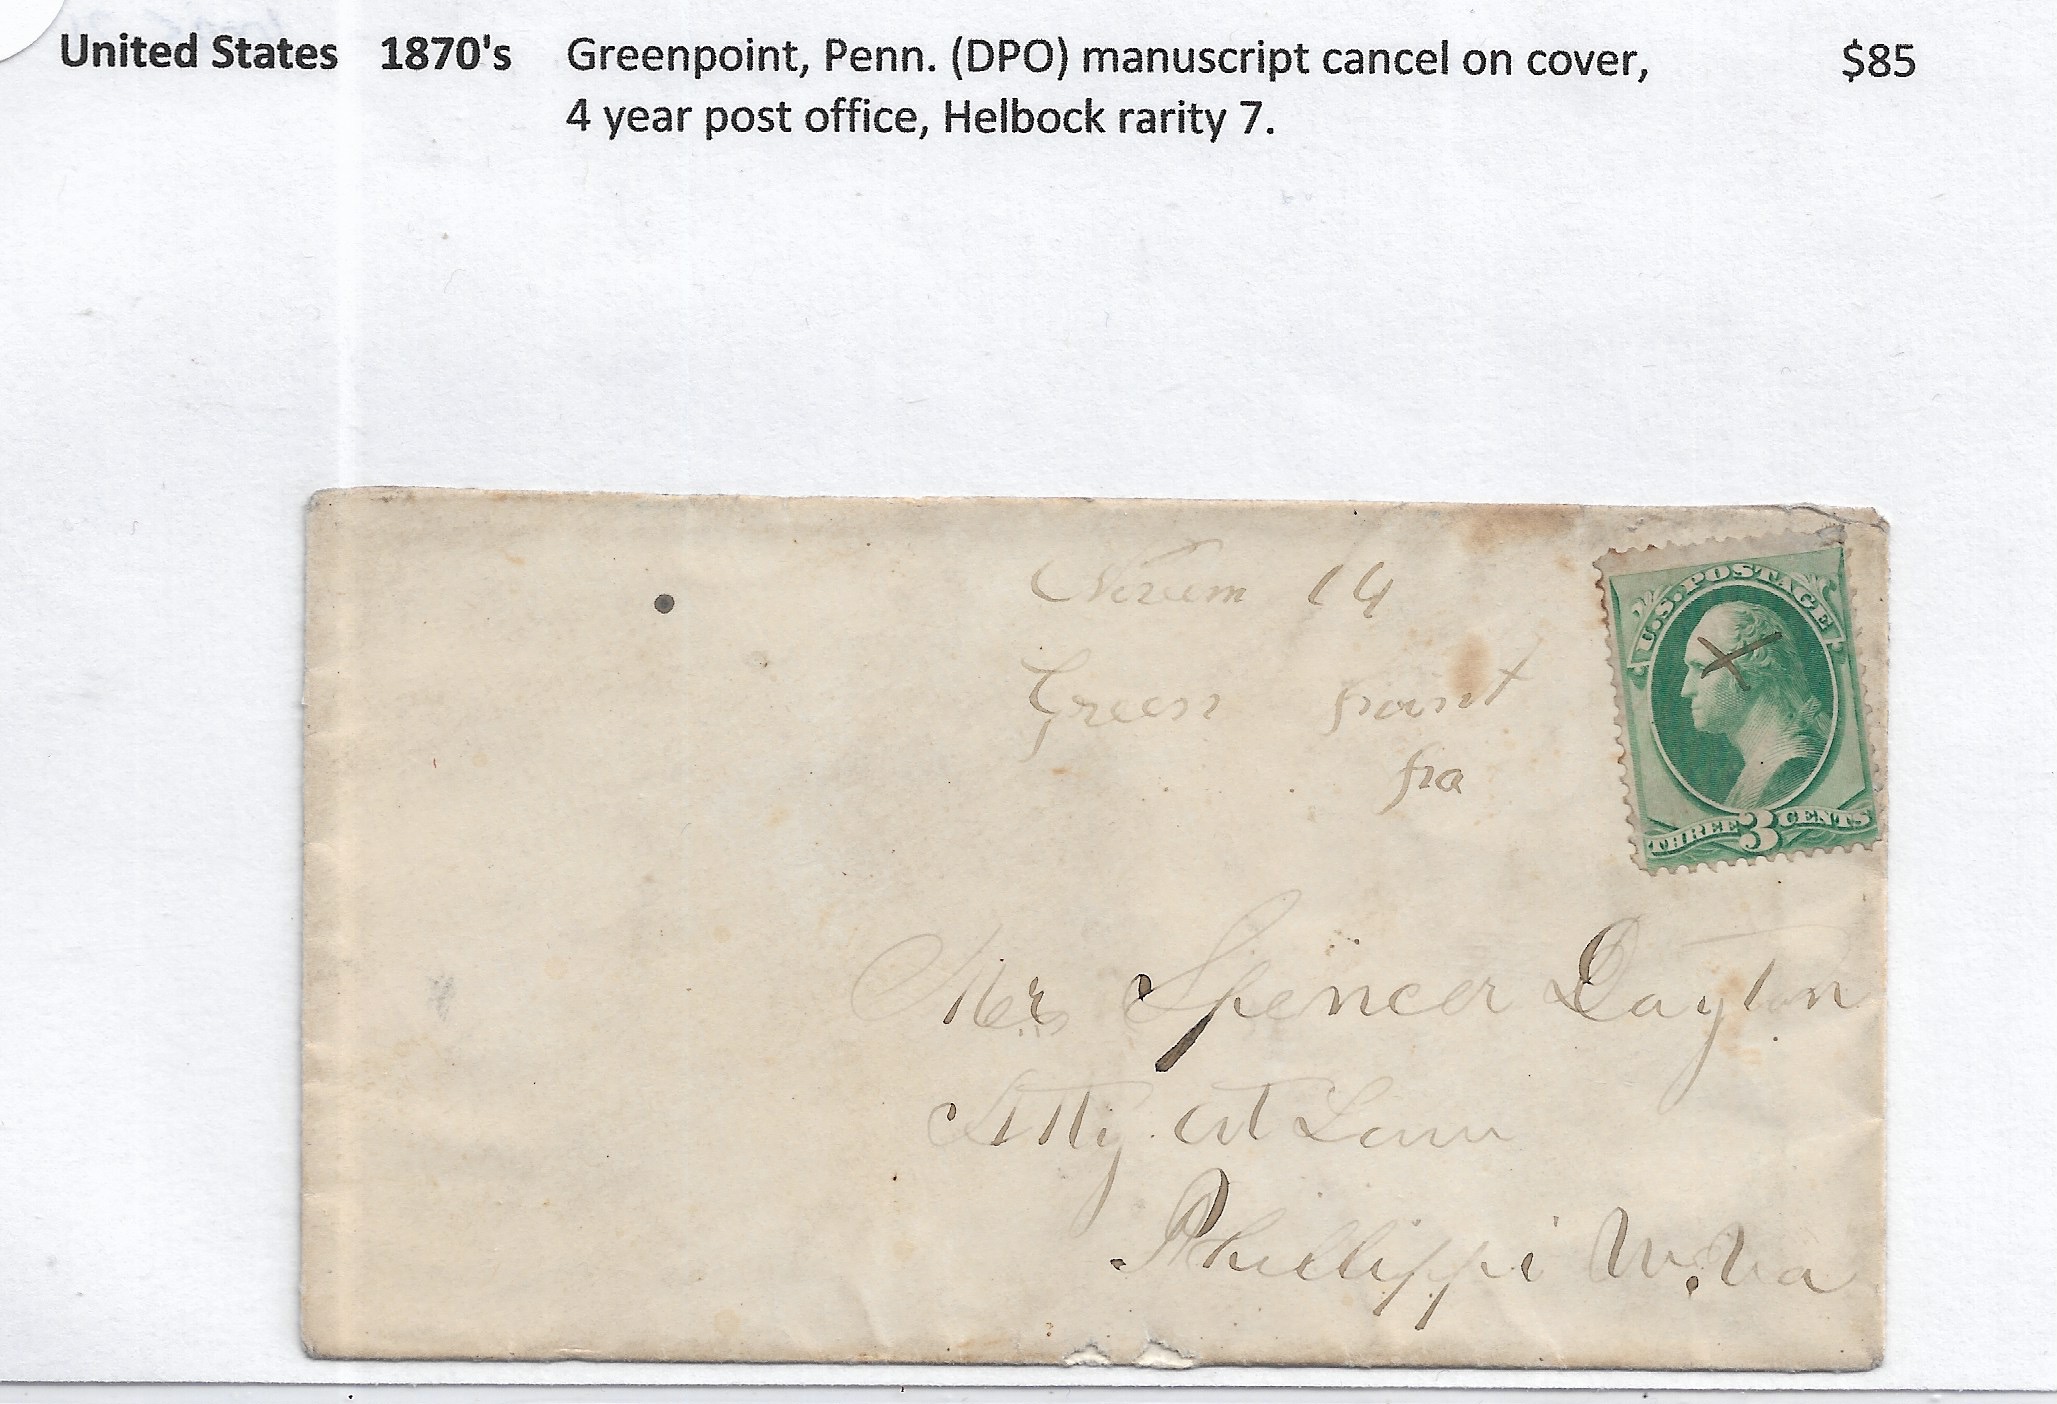 United States 1870's Greenpoint, Penn. (DPO) manuscript cancel on cover, $85
4 year post office, Helbock rarity 7.
14
Green point
Pa
U.S. POSTAGE
THREE 3 CENTS
Mr Spencer Dayton
Atty. at Law
Phillippi W.Va